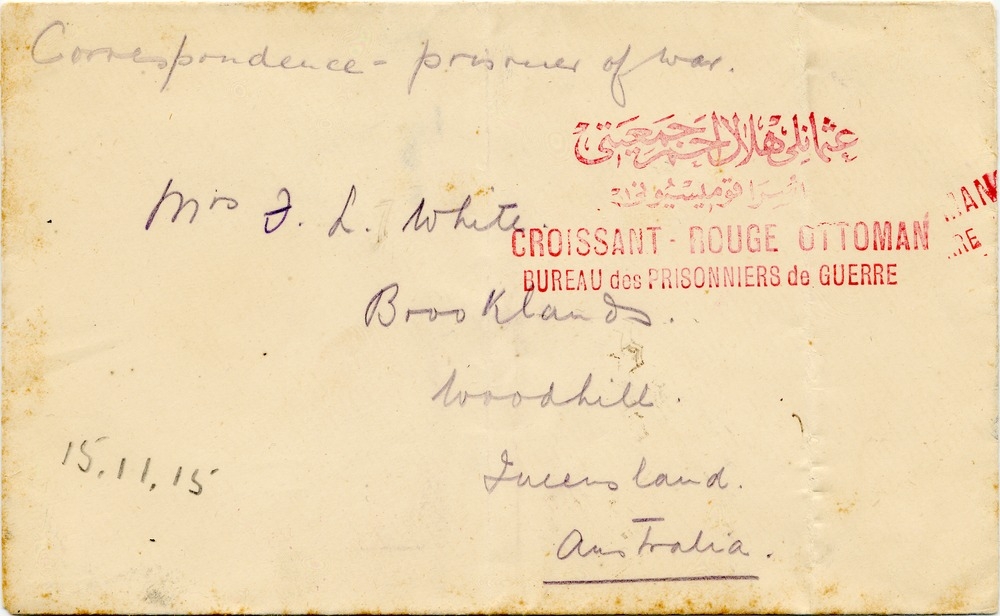 Correspondence - prisoner of war.
عثمانلی هلال احمر جمعیتی
اسرا قومیسیونی
Mrs F. L. White
CROISSANT - ROUGE OTTOMAN
BUREAU des PRISONNIERS de GUERRE
MAN
RE
Brooklands.
Woodhill.
Queensland.
Australia.
15.11.15